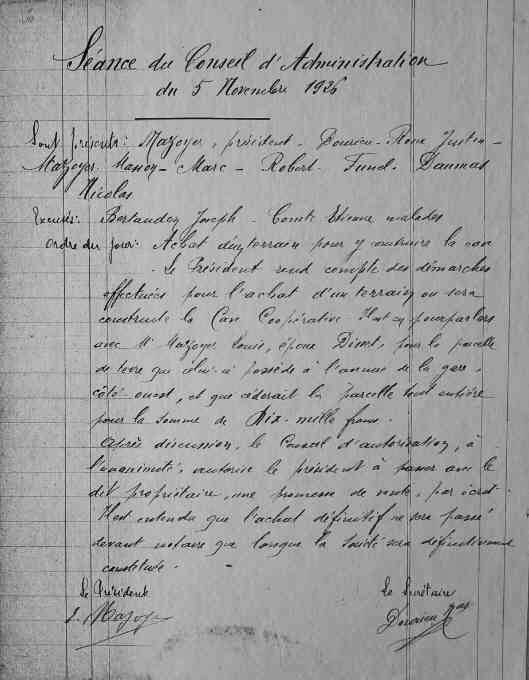 Séance du Conseil d'Administration
du 5 Novembre 1926
Sont présents: Mazoyer, président - Roux Justin -
Mazoyer - Marc - Robert - Daumas
Nicolas
Excusés: Joseph - Comte Etienne malades
Ordre du jour: Achat d'un terrain pour y construire la cave
- Le Président rend compte des démarches
effectuées pour l'achat d'un terrain ou sera
construite la Cave Coopérative Il est en pourparlers
avec Mr Mazoyer Louis, époux pour la parcelle
de terre que celui-ci possède à de la gare,
côté ouest, et que céderait la parcelle tout entière
pour la somme de Dix-mille francs.
Après discussion, le Conseil d'autorisation, à
l'unanimité, autorise le président à passer avec le
dit propriétaire, une promesse de vente, par écrit.
Il est entendu que l'achat définitif ne sera passé
devant notaire que lorsque la Société sera définitivement
constituée.
Le Président Le Secrétaire
Mazoyer